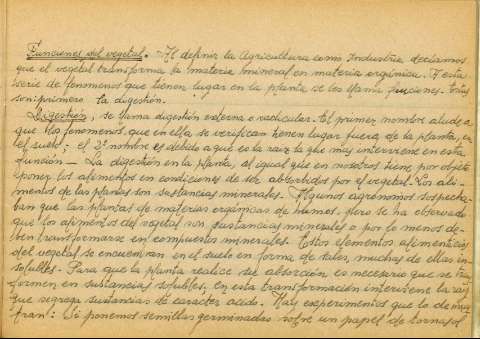 Funciones del vegetal. - Al definir la Agricultura como Industria decíamos
que el vegetal transforma la materia mineral en materia orgánica. A esta
serie de fenomenos que tienen lugar en la planta se les llama funciones. Estas
son: primero la digestión.
Digestión, se llama digestión externa o radicular. El primer nombre alude a
que los fenomenos que en ella se verifican tienen lugar fuera de la planta, en
el suelo; el 2º nombre es debido a que es la raiz la que mas interviene en esta
función — La digestión en la planta, al igual que en nosotros tiene por objeto
poner los alimentos en condiciones de ser absorbidos por el vegetal. Los ali-
mentos de las plantas son sustancias minerales. Algunos agrónomos sospecha-
ban que las plantas de materias orgánicas de humus, pero se ha observado
que los alimentos del vegetal son sustancias minerales o por lo menos de-
ben transformarse en compuestos minerales. Estos elementos alimenticios
del vegetal se encuentran en el suelo en forma de sales, muchas de ellas in-
solubles. Para que la planta realice su absorción es necesario que se trans
formen en sustancias solubles. En esta transformación interviene la raiz
que segrega sustancias de caracter acido. Hay experimentos que lo demues
tran: Si ponemos semillas germinadas sobre un papel de tornasol